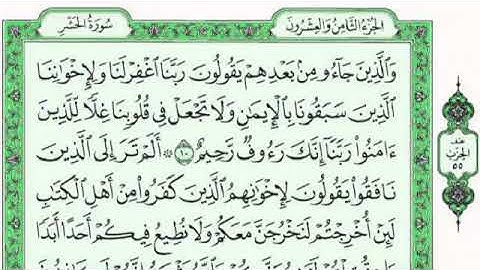 سُورَةُ الحَشْرِ
الجُزءُ الثَّامِنُ وَالعِشْرُونَ
وَٱلَّذِينَ جَآءُو مِنۢ بَعْدِهِمْ يَقُولُونَ رَبَّنَا ٱغْفِرْ لَنَا وَلِإِخْوَٰنِنَا
ٱلَّذِينَ سَبَقُونَا بِٱلْإِيمَٰنِ وَلَا تَجْعَلْ فِى قُلُوبِنَا غِلًّا لِّلَّذِينَ
ءَامَنُوا۟ رَبَّنَآ إِنَّكَ رَءُوفٌ رَّحِيمٌ ١٠ ۞ أَلَمْ تَرَ إِلَى ٱلَّذِينَ
نَافَقُوا۟ يَقُولُونَ لِإِخْوَٰنِهِمُ ٱلَّذِينَ كَفَرُوا۟ مِنْ أَهْلِ ٱلْكِتَٰبِ
لَئِنْ أُخْرِجْتُمْ لَنَخْرُجَنَّ مَعَكُمْ وَلَا نُطِيعُ فِيكُمْ أَحَدًا أَبَدًا
الحِزْب
٥٥